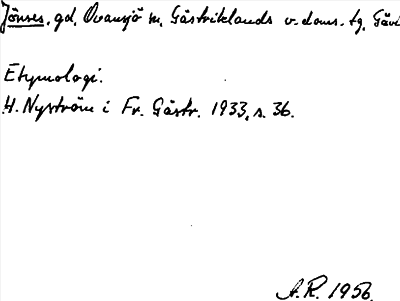 Jönses. gd, Ovansjö sn, Gästriklands v. doms. tg, Gävl
Etymologi.
H. Nyström i Fr. Gästr. 1933, s. 36.
A.R. 1956.